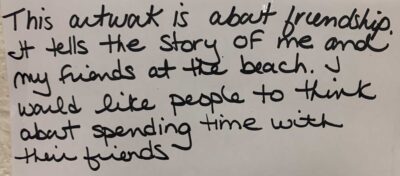 This artwork is about friendship.
It tells the story of me and
my friends at the beach. I
would like people to think
about spending time with
their friends